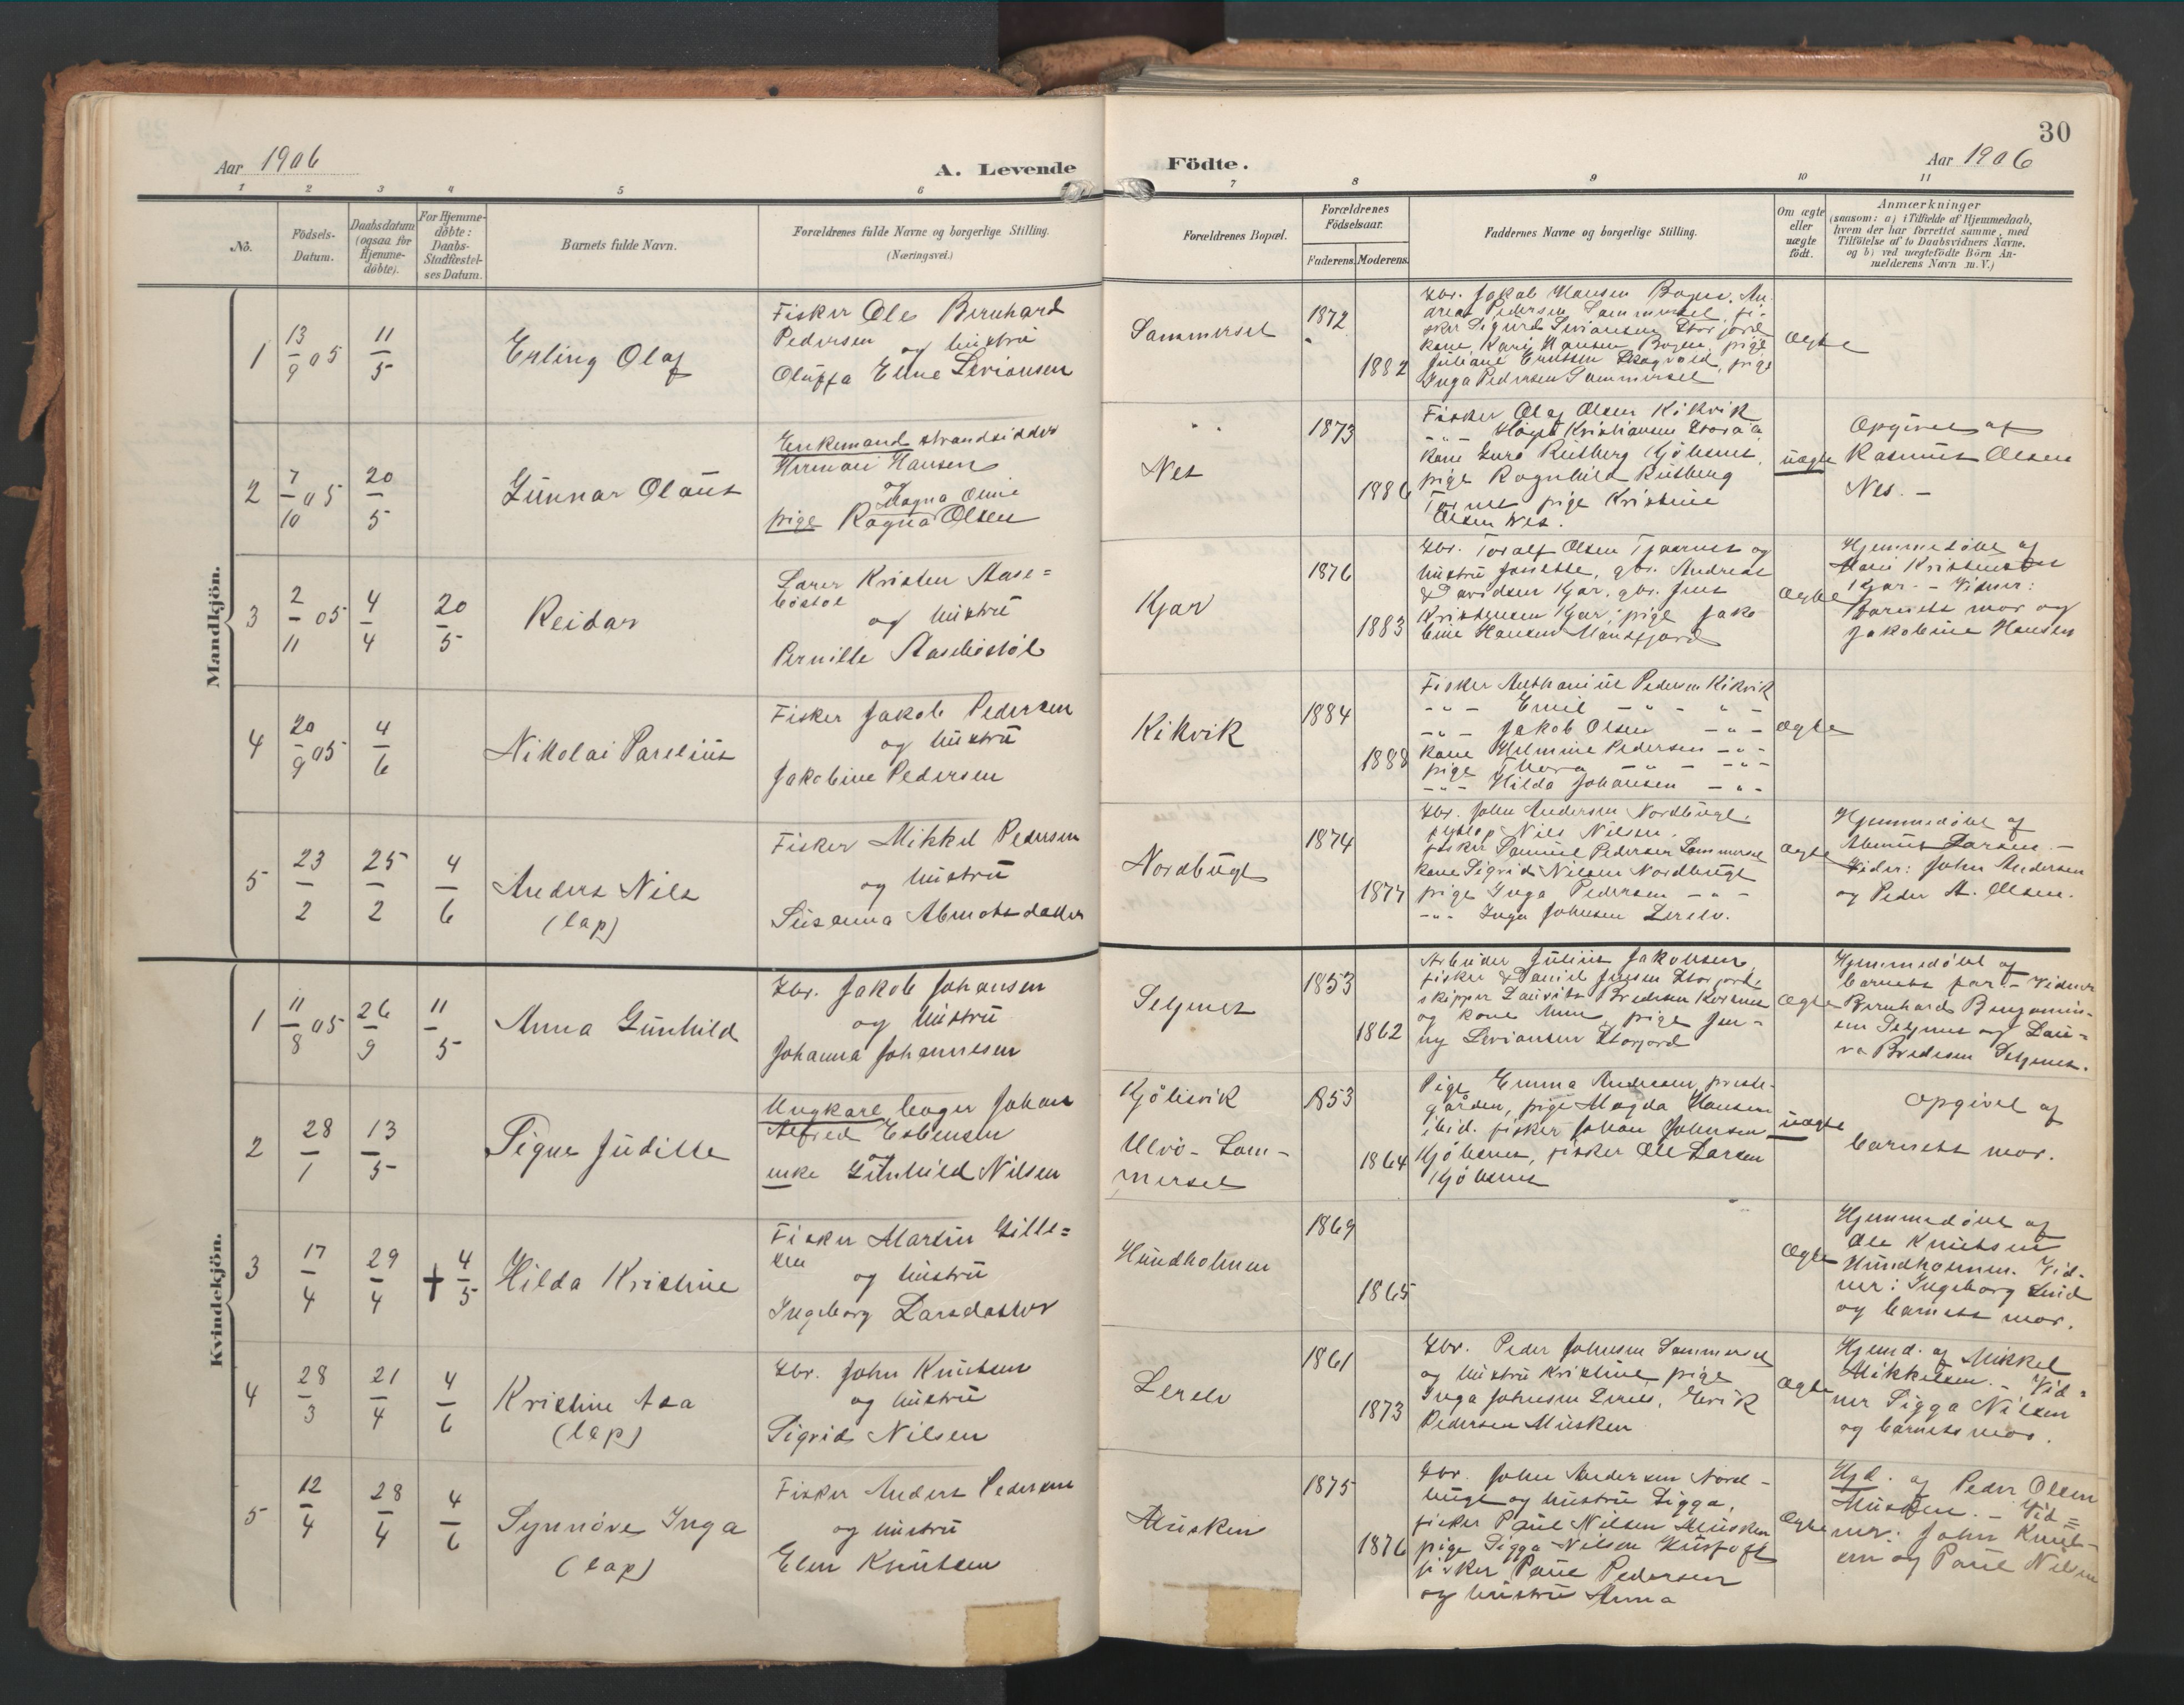 30
Aar 1906
A. Levende Födte.
Aar 1906
1 2 3 4 5 6 7 8 9 10 11
No.
Födsels-Datum.
Daabsdatum (ogsaa for Hjemme-döbte).
For Hjemme-döbte: Daabs-Stadfæstel-ses Datum.
Barnets fulde Navn.
Forældrenes fulde Navne og borgerlige Stilling.
(Næringsvei.)
Forældrenes Bopæl.
Forældrenes Födselsaar.
Faderens. Moderens.
Faddernes Navne og borgerlige Stilling.
Om ægte eller uægte födt.
Anmærkninger
(saasom: a) i Tilfælde af Hjemmedaab,
hvem der har forrettet samme, med
Tilföielse af to Daabsvidners Navne,
og b) ved uægtefödte Börn An-
melderens Navn m. V.)
Mandkjön.
1
13/9 05
11/5
Erling Olaf
Fisker Ole Bernhard
Pedersen og hustru
Oluffa Eline Sivriansen
Sammerset
1872
1882
Gbr. Jakob Hansen Bogen, An-
dreas Pedersen Sammerset, fi-
sker Sigurd Storjord
kone Karij Hansen Bogen, pige
Juliane pige
Inga Pedersen Sammerset
Ægte
2
7/10 05
20/5
Gunnar Olaus
Enkemand strandsidder
Herman Hansen
og Magna Oline
pige Ragna Olsen
" "
Nes
1873
1886
Fisker Olaf Olsen Kikvik
- " - Kristiansen Storaa
kone Guro Rutberg Kjöbsnes,
pige Ragnhild Rutberg
pige Kristine
Olsen Nes.
uægte
Opgivet af
Rasmus Olsen
Nes. -
3
2/11 05
4/4
20/5
Reidar
Lærer Kristen Aase=
böstöl
og hustru
Pernille Aaseböstöl
Kjar
1876
1883
Gbr. Toralf Olsen Tjaarnes og
hustru Josette, gbr. Andreas
Davidsen Kjar, gbr. Jens
Kristensen Kjar, pige Jako-
bine Hansen Mandfjord
Ægte
Hjemmedöbt af
Kjar. - Vidner:
Barnets mor og
Jakobine Hansen
4
20/9 05
4/6
Nikolai Parelius
Fisker Jakob Pedersen
og hustru
Jakobine Pedersen
Kikvik
1884
1888
Fisker Anthanius Pedersen Kikvik
- " - Emil - " - - " -
- " - Jakob Olsen - " -
kone Hilmine Pedersen - " -
pige Thora - " - - " -
- " - Hilda Johansen - " -
ægte
5
23/2
25/2
4/6
Anders Nils
(lap)
Fisker Mikkel Pedersen
og hustru
Susanna Abmutsdatter
Nordbugt
1874
1877
Gbr. John Andersen Nordbugt,
Nils Nilsen,
fisker Samuel Pedersen Sommerset
kone Sigrid Nilsen Nordbugt
pige Inga Pedersen - " -
- " - Inga Johnsen Lerelv.
Ægte
Hjemmedöbt af
Abmut Larsen. -
Vidner: John Andersen
og Peder A. Olsen.
Kvindekjön.
1
11/8 05
26/9
11/5
Anna Gunhild
Gbr. Jakob Johansen
og hustru
Johanna Johannesen
Seljenes
1853
1862
Arbeider Julius Jakobsen,
fisker Daniel Jensen Storjord,
skipper Lauritz Bredesen Korsnes
og kone pige Jen-
ny Storjord
Ægte
Hjemmedöbt af
barnets far - Vidner
Bernhard Benjamin-
sen Seljenes og Lau-
ra Bredesen Seljenes.
2
28/1
13/5
Signe Juditte
Ungkarl, bager Johan
Alfred Esbensen
og
enke Gunhild Nilsen
Kjöbsvik
Ulvö - Som-
merset
1853
1864
Pige Emma Andersen, preste-
gården, pige Magda Hansen
ibid. fisker Johan Johnsen
Kjöbsnes, fisker Ole Larsen
Kjöbsnes
uægte
Opgivet af
barnets mor.
3
17/4
29/4
† 4/5
Hilda Kristine
Fisker Martin Gitte=
sen
og hustru
Ingeborg Larsdatter
Hundholmen
1869
1865
Ægte
Hjemmedöbt af
Ole Knutsen
Hundholmen. Vid-
ner: Ingeborg
og barnets mor.
4
28/3
21/4
4/6
Kristine Asa
(lap)
Gbr. John Knutsen
og hustru
Sigrid Nilsen
Lerelv
1861
1873
Gbr. Peder Johnsen Sommerset
og hustru Kristine, pige
Inga Johnsen Lerelv, Erik
Pedersen Musken
Ægte
Hjemd. af Mikkel
Mikkelsen. - Vid=
ner Sigga Nilsen
og barnets mor.
5
12/4
28/4
4/6
Synnöve Inga
(lap)
Fisker Anders Pedersen
og hustru
Elen Knutsen
Musken
1875
1876
Gbr. John Andersen Nord-
bugt og hustru Sigga,
fisker Paul Nilsen Musken
pige Sigga Nilsen
fisker Paul Pedersen
og hustru Anna
Ægte
Hjd. af Peder Olsen
Musken. - Vid=
ner: John Knut-
sen og Paul Nilsen